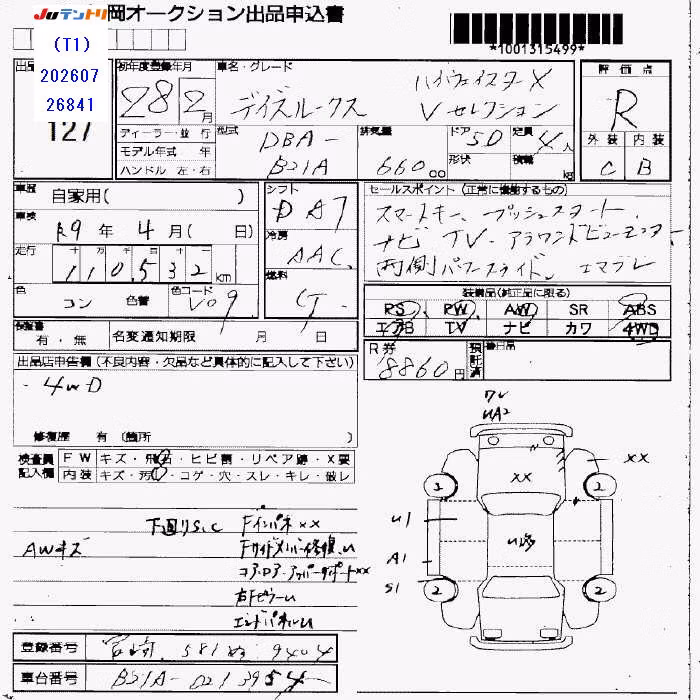 Juテントリ 岡オークション出品申込書
(T1)
202607
26841
*1001315499*
127
初年度登録年月
28 2月
車名・グレード
デイズルークス
ハイウェイスターX
Vセレクション
評価点
R
外装 内装
C B
ディーラー・並行
モデル年式 年
ハンドル 左・右
型式
DBA-
B21A
排気量
660cc
ドア 5D
形状
定員 4人
積載 kg
車歴 自家用( )
車検 R9年 4月( 日)
走行 十 万 千 百 十 一
110,532km
色 コン 色替
色コード V09
シフト
DAT
冷房
AAC
燃料
G
セールスポイント(正常に機能するもの)
スマートキー、プッシュスタート、
ナビ TV、アラウンドビューモニター、
両側パワースライド、エマブレ
装備品(純正品に限る)
PS PW AW SR ABS
エアB TV ナビ カワ 4WD
保証書 有・無
名変通知期限 月 日
R券 8860円
預託済
後日品
出品店申告欄(不良内容・欠品など具体的に記入して下さい)
・4WD
修復歴 有(箇所 )
検査員記入欄
FW キズ・飛石・ヒビ割・リペア跡・X要
内装 キズ・汚れ・コゲ・穴・スレ・キレ・破レ
ワレ
UA2
XX
XX
3 2
U1
A1
S1
2 2
下廻りS,C
AWキズ
Fインパネ XX
Fサイドメンバー修復、U
コアロア・アッパーサポートXX
右FピラーU
エンドパネルU
登録番号 宮崎 581 ぬ 9404
車台番号 B21A-0213954